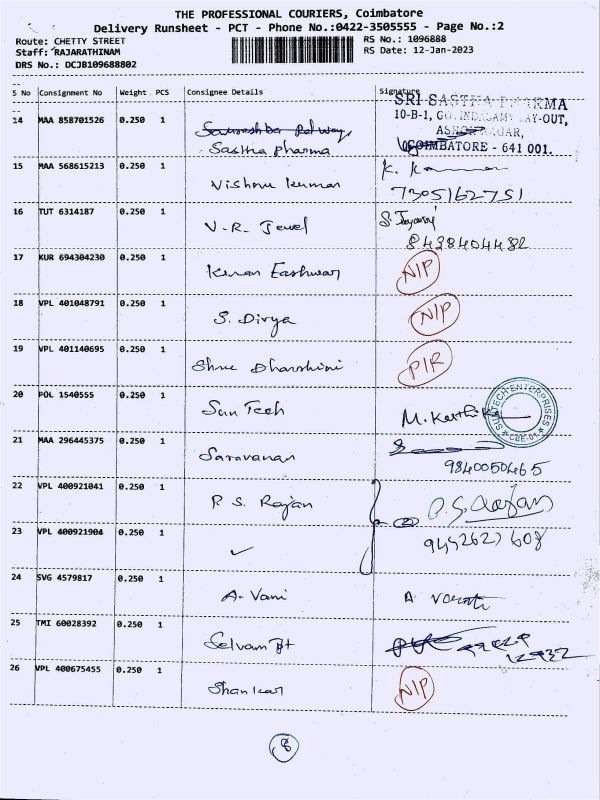 THE PROFESSIONAL COURIERS, Coimbatore
Delivery Runsheet - PCT - Phone No.:0422-3505555 - Page No.:2
Route: CHETTY STREET RS No.: 1096888
Staff: RAJARATHINAM RS Date: 12-Jan-2023
DRS No.: DCJB109688802
S No Consignment No Weight PCS Consignee Details Signature
SRI SASTHA PHARMA
14 MAA 858701526 0.250 1 10-B-1, GOVINDASAMY LAY-OUT,
Sastha pharma ASHOK NAGAR,
COIMBATORE - 641 001.
15 MAA 568615213 0.250 1 Vishnu kumar K. Kumar
7305162751
16 TUT 6314187 0.250 1 V.R. Jewel S. Jayasri
8438404482
17 KUR 694304230 0.250 1 Kiran Eashwar N/P
18 VPL 401048791 0.250 1 S. Divya N/P
19 VPL 401140695 0.250 1 Shree Dharshini P/R
20 POL 1540555 0.250 1 Sun Tech M. Karthik
SUNTECH ENTERPRISES
CBE-01
21 MAA 296445375 0.250 1 Saravanan
9840050465
22 VPL 400921041 0.250 1 P. S. Rajan P.S. Rajan
23 VPL 400921904 0.250 1 ✓ 9452627608
24 SVG 4579817 0.250 1 A. Vani A
25 TMI 60028392 0.250 1 Selvam Bt
26 VPL 400675455 0.250 1 Shankar N/P
8